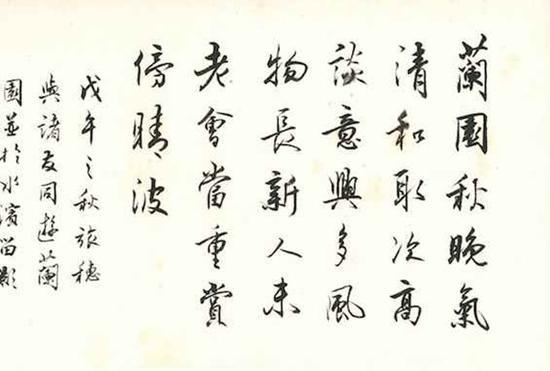 蘭園秋晚氣
清和取次高
談意興多風
物長新人未
老會當重賞
傍晴波
戊午之秋旅穗
與諸友同遊蘭
園並於水濱留影